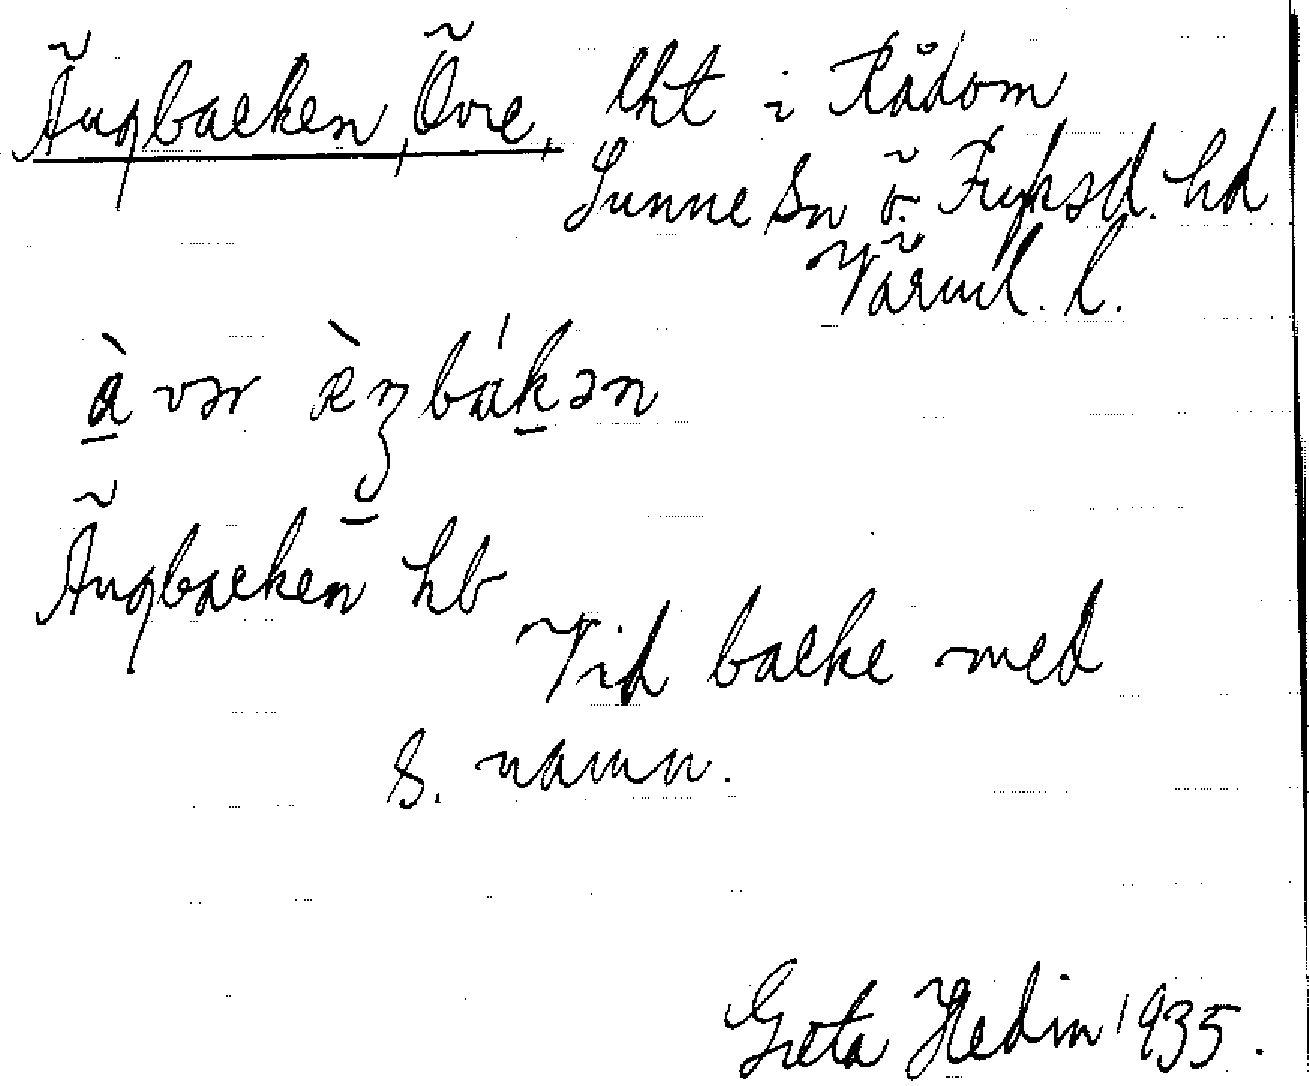 Ängbacken, Övre, lht i Rådom
Sunne sn Ö. Fryksd. hd
Värml. l.
àvər æ̀ŋbákən
Ängbacken hb
Vid backe med
s. namn.
Greta Hedin 1935.